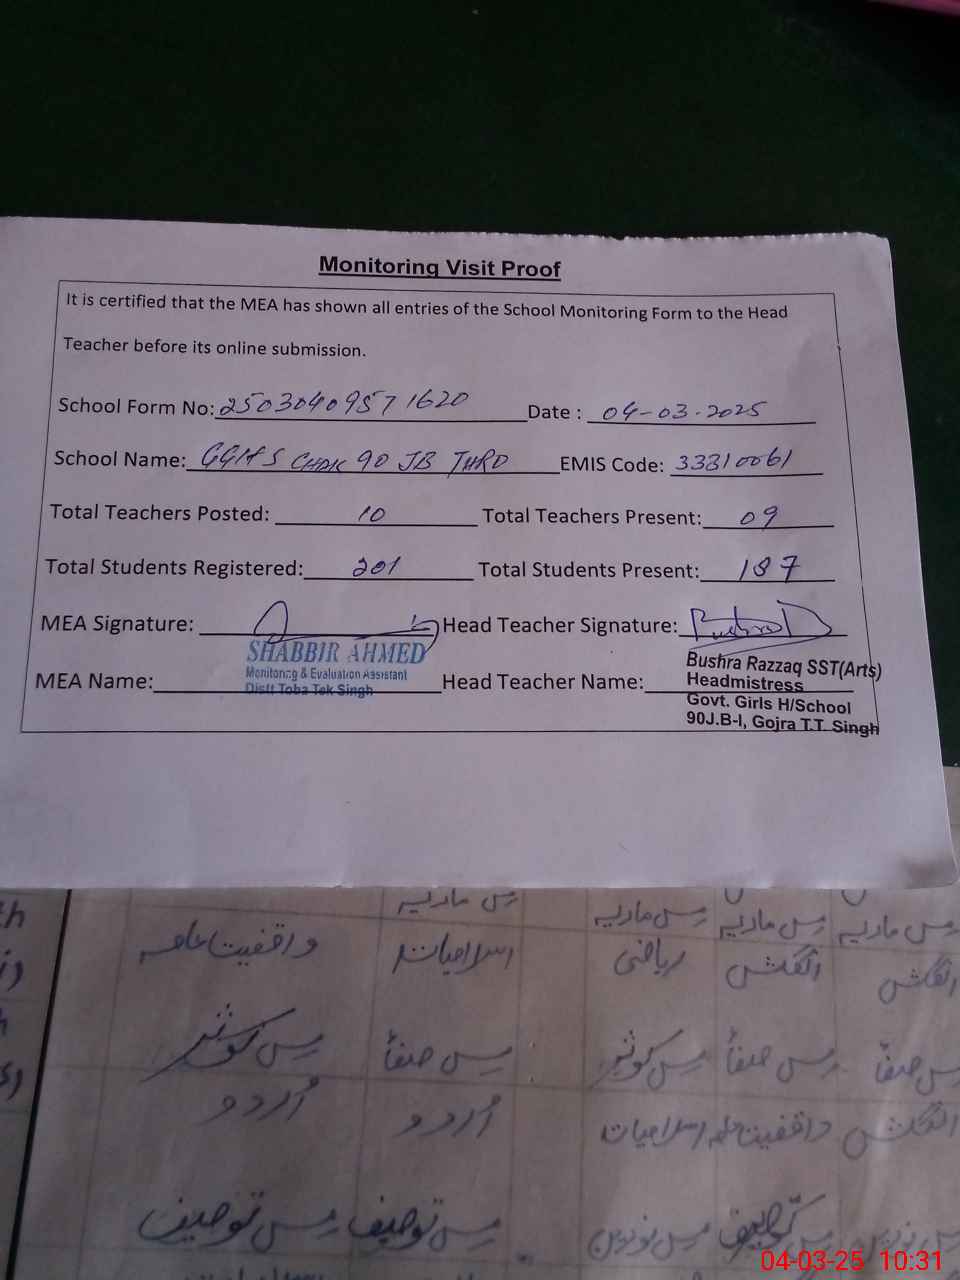 Monitoring Visit Proof
It is certified that the MEA has shown all entries of the School Monitoring Form to the Head
Teacher before its online submission.
School Form No: 2503040957 1620 Date : 04-03-2025
School Name: GGHS CHAK 90 JB THRD EMIS Code: 33310061
Total Teachers Posted: 10 Total Teachers Present: 09
Total Students Registered: 201 Total Students Present: 187
MEA Signature: Head Teacher Signature:
SHABBIR AHMED
Monitoring & Evaluation Assistant
Distt Toba Tek Singh
MEA Name: Head Teacher Name:
Bushra Razzaq SST(Arts)
Headmistress
Govt. Girls H/School
90J.B-I, Gojra T.T. Singh
مس ماریہ مس ماریہ مس ماریہ مس ماریہ
انگلش انگلش ریاضی اسلامیات واقفیت عامہ
مس صفا مس صفا مس کوثر مس صفا مس کوثر
انگلش واقفیت عامہ اسلامیات اُردو اُردو
مس نورین مس توصیف مس توصیف
04-03-25 10:31